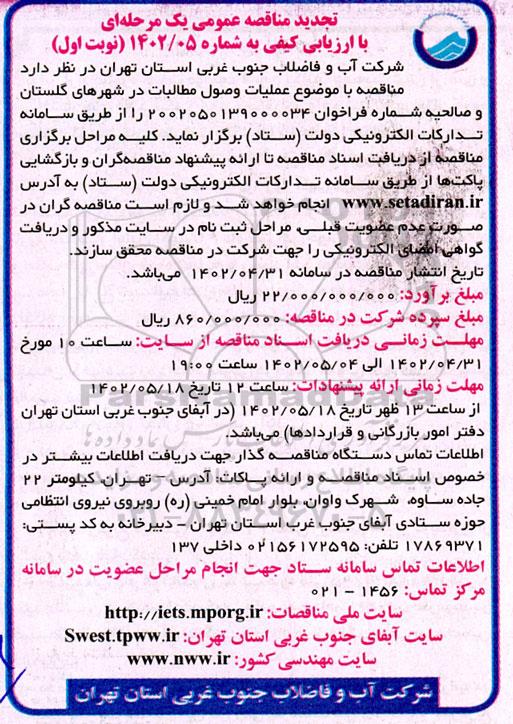 تجدید مناقصه عمومی یک مرحله‌ای
با ارزیابی کیفی به شماره ۱۴۰۲/۰۵ (نوبت اول)
شرکت آب و فاضلاب جنوب غربی استان تهران در نظر دارد
مناقصه با موضوع عملیات وصول مطالبات در شهرهای گلستان
و صالحیه شماره فراخوان ۲۰۰۲۰۵۰۱۳۹۰۰۰۰۳۴ را از طریق سامانه
تدارکات الکترونیکی دولت (ستاد) برگزار نماید. کلیه مراحل برگزاری
مناقصه از دریافت اسناد مناقصه تا ارائه پیشنهاد مناقصه‌گران و بازگشایی
پاکت‌ها از طریق سامانه تدارکات الکترونیکی دولت (ستاد) به آدرس
www.setadiran.ir انجام خواهد شد و لازم است مناقصه گران در
صورت عدم عضویت قبلی، مراحل ثبت نام در سایت مذکور و دریافت
گواهی امضای الکترونیکی را جهت شرکت در مناقصه محقق سازند.
تاریخ انتشار مناقصه در سامانه ۱۴۰۲/۰۴/۳۱ می‌باشد.
مبلغ برآورد: ۲۲/۰۰۰/۰۰۰/۰۰۰ ریال
مبلغ سپرده شرکت در مناقصه: ۸۶۰/۰۰۰/۰۰۰ ریال
مهلت زمانی دریافت اسناد مناقصه از سایت: ساعت ۱۰ مورخ
۱۴۰۲/۰۴/۳۱ الی ۱۴۰۲/۰۵/۰۴ ساعت ۱۹:۰۰
مهلت زمانی ارائه پیشنهادات: ساعت ۱۲ تاریخ ۱۴۰۲/۰۵/۱۸
از ساعت ۱۳ ظهر تاریخ ۱۴۰۲/۰۵/۱۸ (در آبفای جنوب غربی استان تهران
دفتر امور بازرگانی و قراردادها) می‌باشد.
اطلاعات تماس دستگاه مناقصه گذار جهت دریافت اطلاعات بیشتر در
خصوص اسناد مناقصه و ارائه پاکات: آدرس - تهران، کیلومتر ۲۲
جاده ساوه، شهرک واوان، بلوار امام خمینی (ره) روبروی نیروی انتظامی
حوزه ستادی آبفای جنوب غرب استان تهران - دبیرخانه به کد پستی:
۱۷۸۶۹۳۷۱ تلفن: ۰۲۱۵۶۱۷۲۵۹۵ داخلی ۱۳۷
اطلاعات تماس سامانه ستاد جهت انجام مراحل عضویت در سامانه
مرکز تماس: ۱۴۵۶ - ۰۲۱
سایت ملی مناقصات: http://iets.mporg.ir
سایت آبفای جنوب غربی استان تهران: Swest.tpww.ir
سایت مهندسی کشور: www.nww.ir
شرکت آب و فاضلاب جنوب غربی استان تهران